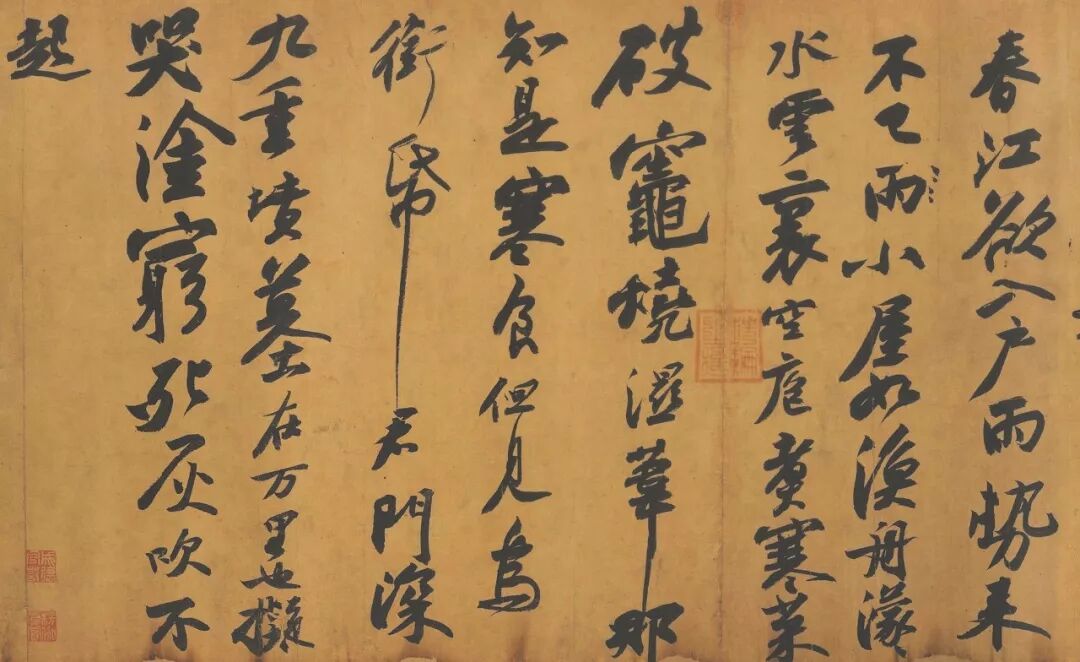 春江欲入戶雨勢来
不已雨小屋如漁舟濛〻
水雲裏空庖煑寒菜
破竈燒濕葦那
知是寒食但見烏
銜帋君門深
九重墳墓在万里也擬
哭塗窮死灰吹不
起